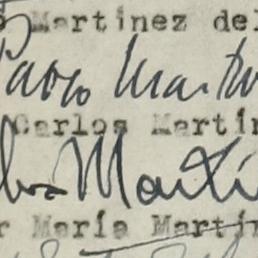 Martinez del
Pablo Martín
Carlos Martín
Martí
r María Martín